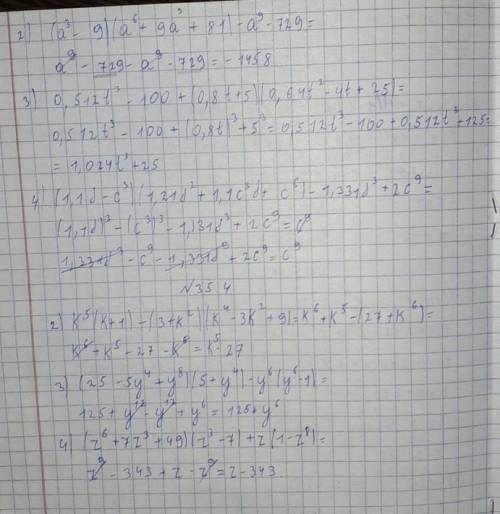 2) (a³ - 9)(a⁶ + 9a³ + 81) - a⁹ - 729 =
a⁹ - 729 - a⁹ - 729 = - 1458
3) 0,512t³ - 100 + (0,8t + 5)(0,64t² - 4t + 25) =
0,512t³ - 100 + (0,8t)³ + 5³ = 0,512t³ - 100 + 0,512t³ + 125 =
= 1,024t³ + 25
4) (1,1d - c³)(1,21d² + 1,1c³d + c⁶) - 1,331d³ + 2c⁹ =
(1,1d)³ - (c³)³ - 1,331d³ + 2c⁹ = c⁹
1,331d³ - c⁹ - 1,331d³ + 2c⁹ = c⁹
№35.4
2) k⁵(k+1) - (3+k²)(k⁴ - 3k² + 9) = k⁶ + k⁵ - (27 + k⁶) =
k⁶ + k⁵ - 27 - k⁶ = k⁵ - 27
3) (25 - 5y⁴ + y⁸)(5 + y⁴) - y⁶(y⁶ - 1) =
125 + y¹² - y¹² + y⁶ = 125 + y⁶
4) (z⁶ + 7z³ + 49)(z³ - 7) + z(1 - z⁸) =
z⁹ - 343 + z - z⁹ = z - 343